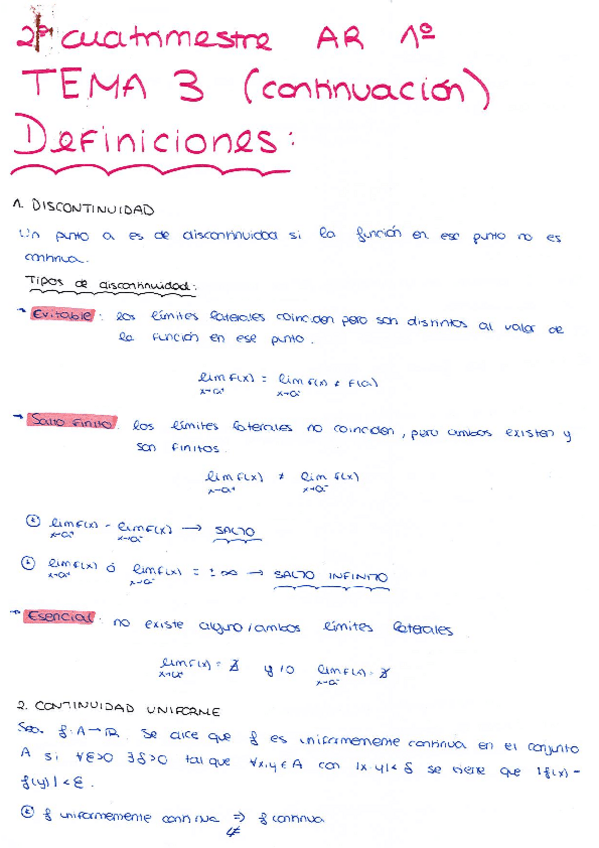 2º cuatrimestre AR 1º
TEMA 3 (continuación)
Definiciones:
1. DISCONTINUIDAD
Un punto a es de discontinuidad si la función en ese punto no es
continua.
Tipos de discontinuidad:
→ Evitable: los límites laterales coinciden pero son distintos al valor de
la función en ese punto.
lim f(x) = lim f(x) ≠ f(a)
x→a⁺ x→a⁻
→ Salto finito: los límites laterales no coinciden, pero ambos existen y
son finitos.
lim f(x) ≠ lim f(x)
x→a⁺ x→a⁻
lim f(x) - lim f(x) → SALTO
x→a⁺ x→a⁻
lim f(x) ó lim f(x) = ±∞ → SALTO INFINITO
x→a⁺ x→a⁻
→ Esencial: no existe alguno/ambos límites laterales
lim f(x) = ∄ y/o lim f(x) = ∄
x→a⁺ x→a⁻
2. CONTINUIDAD UNIFORME
Sea f: A→ℝ. Se dice que f es uniformemente continua en el conjunto
A si ∀ε>0 ∃δ>0 tal que ∀x,y∈A con |x-y|<δ se tiene que |f(x)-
f(y)|<ε.
f uniformemente continua ⇒ f continua
⇍